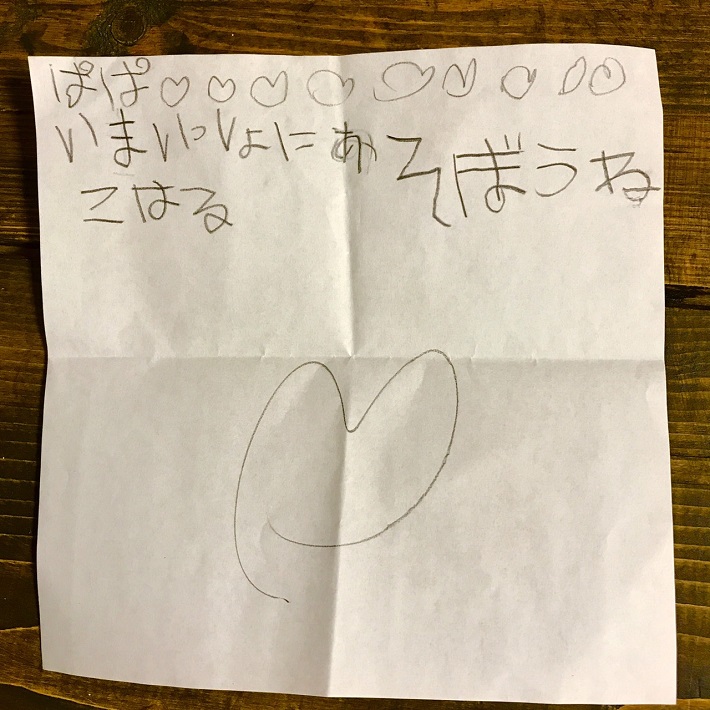 ぱぱ♡♡♡♡♡♡♡♡♡
いまいっしょにあそぼうね
こはる